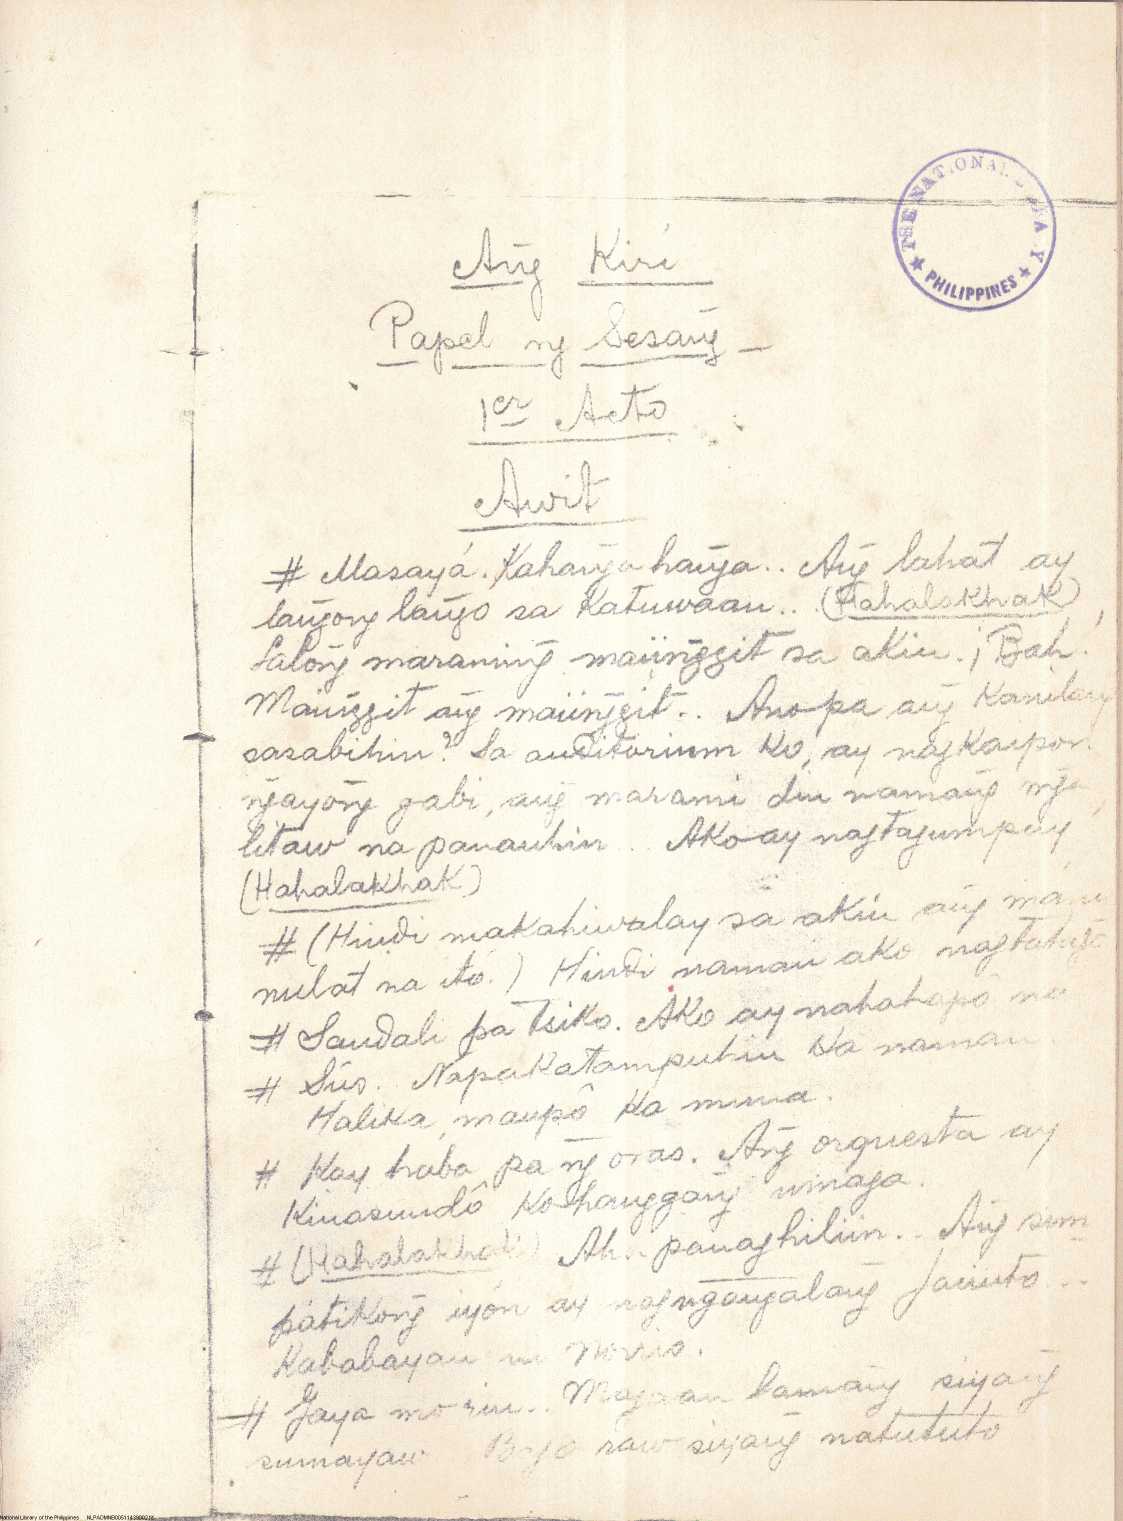 THE NATIONAL
PHILIPPINES
Ang̃ Kirí
Papel ng Sesang̃
1er Acto
Awit
# Masayá. Kahang̃a hang̃a.. Ang̃ lahat ay
lang̃ong lang̃o sa Katuwaan.. (Hahalakhak)
Lalong̃ maraming̃ maiing̃git sa akin. ¡Bah!
Maing̃git ang̃ maiing̃git.. Ano pa ang̃ Kanilang̃
sasabihin? Sa auditorium Ko, ay nagkaipon
ng̃ayong̃ gabi, ang̃ marami din namang̃ mg̃a
litaw na panauhin.. Ako ay nagtagumpay
(Hahalakhak)
# (Hindi makahiwalay sa akin ang̃ manu
nulat na itó.) Hindi naman ako nagtatagó
# Sandali pa Tsiko. Ako ay nahahapô na
# Sús. Napakatampuhin Ka naman.
Halika, maupô Ka muna.
# Kay haba pa ng̃ oras. Ang̃ orquesta ay
Kinasundô Ko hanggang̃ umaga.
# (Hahalakhak) Ah.. panaghiliin.. Ang̃ sim
pátikong̃ iyón ay nagng̃ang̃alang̃ Jacinto...
Kababayan ni Novio.
# Gaya mo rin.. Magaan lamang̃ siyang̃
sumayaw Bago raw siyang̃ natututo
National Library of the Philippines